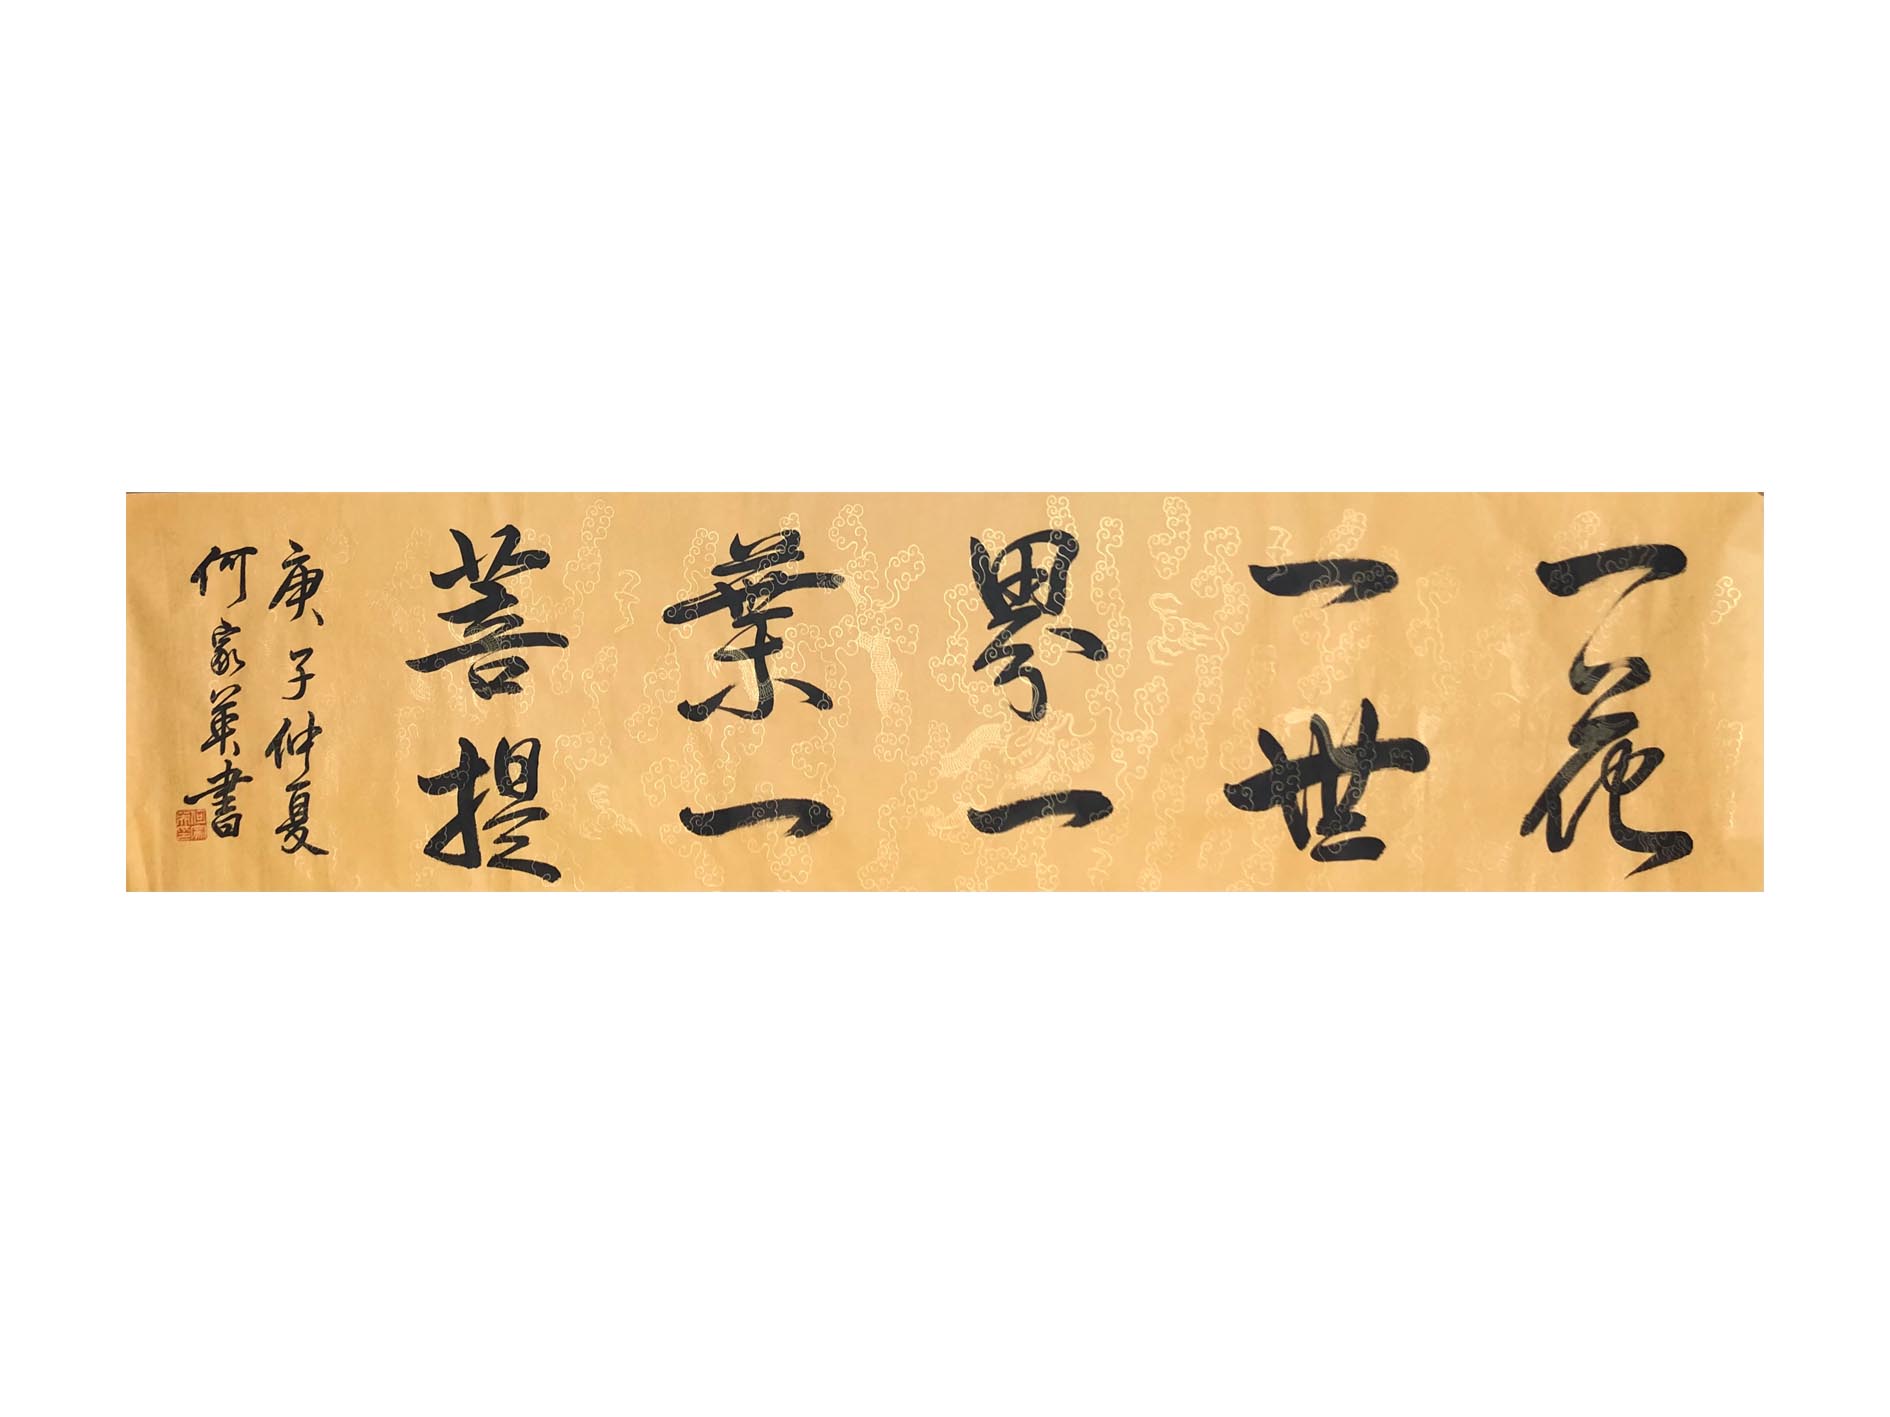 一花
一世
界一
葉一
菩提
庚子仲夏
何家英書
何家英